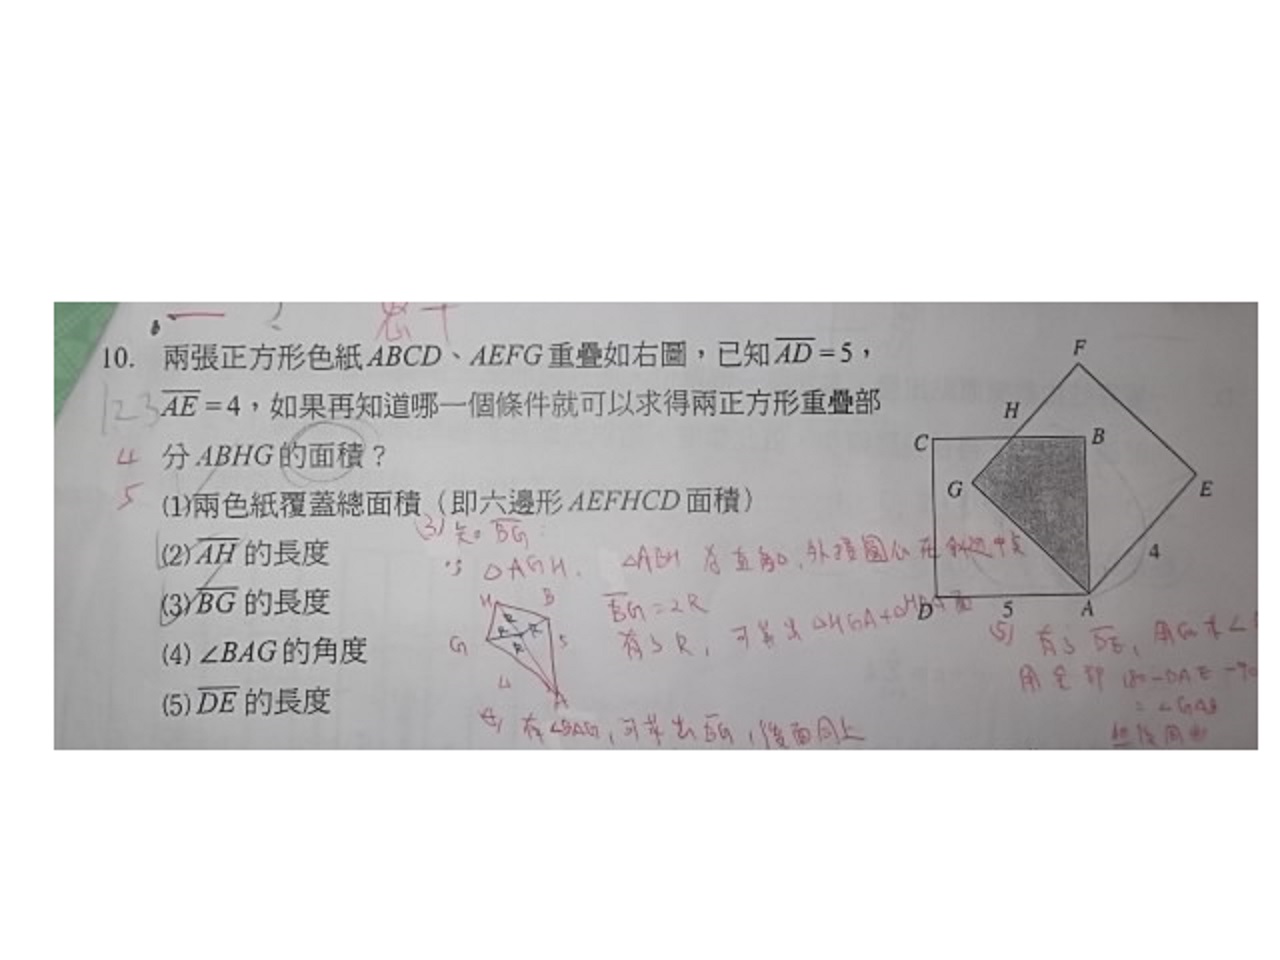 10. 兩張正方形色紙ABCD、AEFG重疊如右圖，已知AD=5，
AE=4，如果再知道哪一個條件就可以求得兩正方形重疊部
分ABHG的面積？
(1)兩色紙覆蓋總面積（即六邊形AEFHCD面積）
(2)AH的長度
(3)BG的長度
(4)∠BAG的角度
(5)DE的長度
F
H
C
B
G
E
4
D
5
A
123
4
5
(3) 知 BG:
△AGH、△ABH 為直角△,外接圓心在斜邊中點
BG=2R
有了R，可算出△HGA+△HBA面
H
B
G
R
R
R
R
5
4
A
(4) 有∠BAG,可算出BG,後面同上
(5) 有了DE,用
180-DAE-90
=∠GAB
然後同